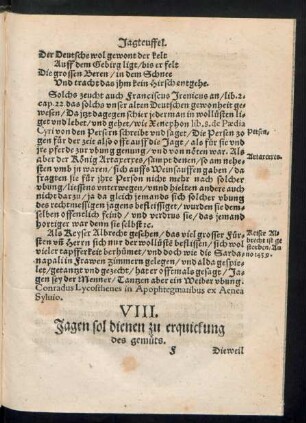 Jagteuffel.
Der Deutsche wol gewont der kelt
Auff dem Gebirg ligt / bis er felt
Die grossen Beren / in dem Schnee
Und tracht das jhm kein Hirsch entgehe.
Solchs zeucht auch Franciscus Irenicus an / lib. 2.
cap. 22 das solchs unser alten Deutschen gewonheit ge-
wesen / Da jtzt dagegen schier jederman in wollüsten li-
get und lebet / und gehet / wie Xenophon lib. 8. de Pædia
Cyri von den Persern schreibt und saget / Die Persen zo
gen für der zeit also offt auff die Jagt / als für sie und
die pferde zur ubung genung / und von nöten war. Als
aber der König Artaxerxes / sampt denen / so am nehe-
sten umb in waren / sich auffs Weinsauffen gaben / da
fragten sie für jhre Person nicht mehr nach solcher
ubung / liessens unterwegen / unnd hielten andere auch
nicht da zu / ja da gleich jemands sich solcher ubung
des rechtmessigen jagens befleissiget / wurden sie dem-
selben offenlich feind / und verdrus sie / das jemand
hortiger war denn sie selbst rc.
Als Keyser Albrecht gesehen / das viel grosser Für-
sten uff Herrn sich nur der wollüste beflissen / sich wol
vieler tapfferkeit berhümet / und doch wie die Sarda-
napali in Frawen Zimmern gelegen / und alda gespie-
let / getantzt und gezecht / hat er offtmals gesagt / Ja-
gen sey der Menner / Tantzen aber ein Weiber ubung.
Conradus Lycosthenes in Apophtegmatibus ex Aenea
Syluio.
Persen.
Artaxerxes.
Keiser Al-
brecht ist ge
storben / An
no 1439.
VIII.
Jagen sol dienen zu erquickung
des gemüts.
F Dieweil